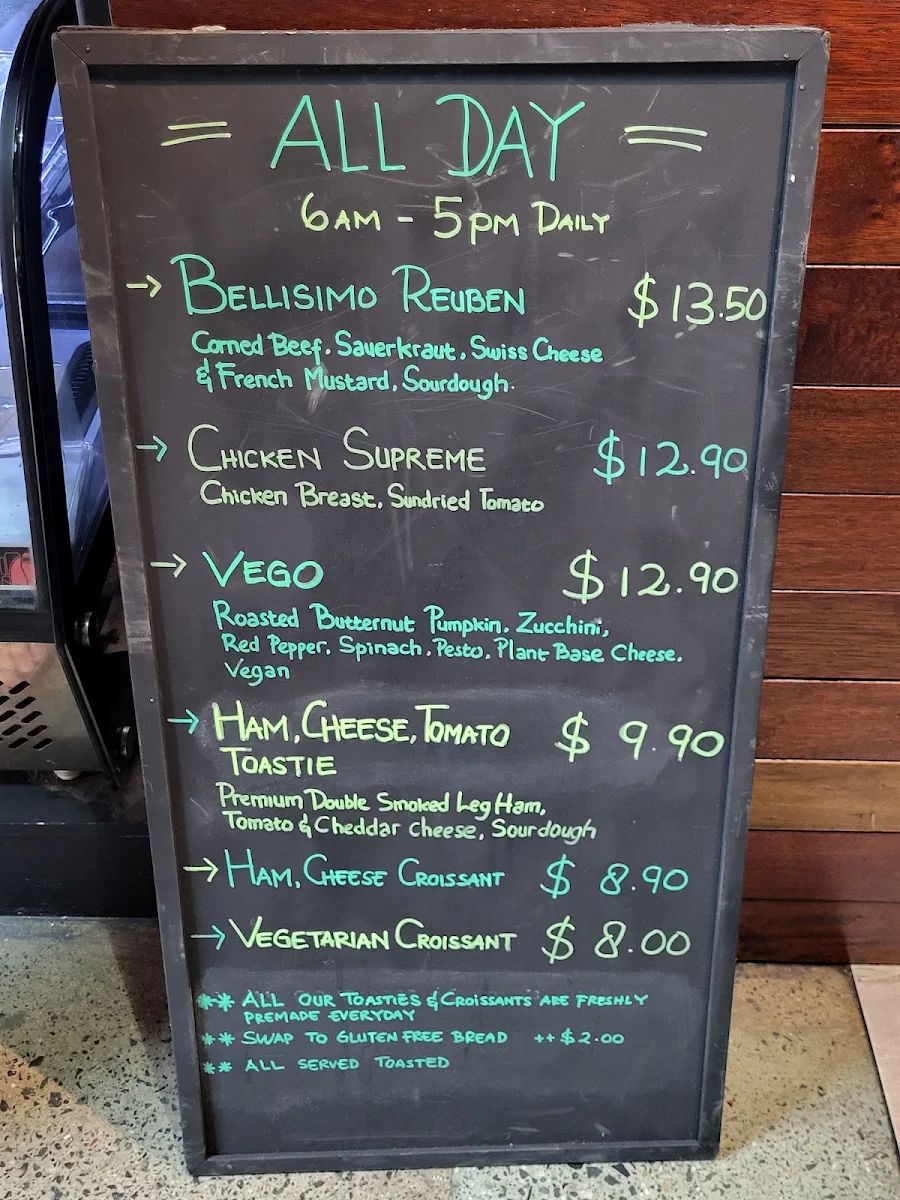 ALL DAY
6AM - 5PM DAILY
→ BELLISIMO REUBEN $13.50
Corned Beef, Sauerkraut, Swiss Cheese
& French Mustard, Sourdough.
→ CHICKEN SUPREME $12.90
Chicken Breast, Sundried Tomato
→ VEGO $12.90
Roasted Butternut Pumpkin, Zucchini,
Red Pepper, Spinach, Pesto, Plant Base Cheese.
Vegan
→ HAM, CHEESE, TOMATO $9.90
TOASTIE
Premium Double Smoked Leg Ham,
Tomato & Cheddar cheese, Sourdough
→ HAM, CHEESE CROISSANT $8.90
→ VEGETARIAN CROISSANT $8.00
** ALL OUR TOASTIES & CROISSANTS ARE FRESHLY
PREMADE EVERYDAY
** SWAP TO GLUTEN FREE BREAD ++$2.00
** ALL SERVED TOASTED